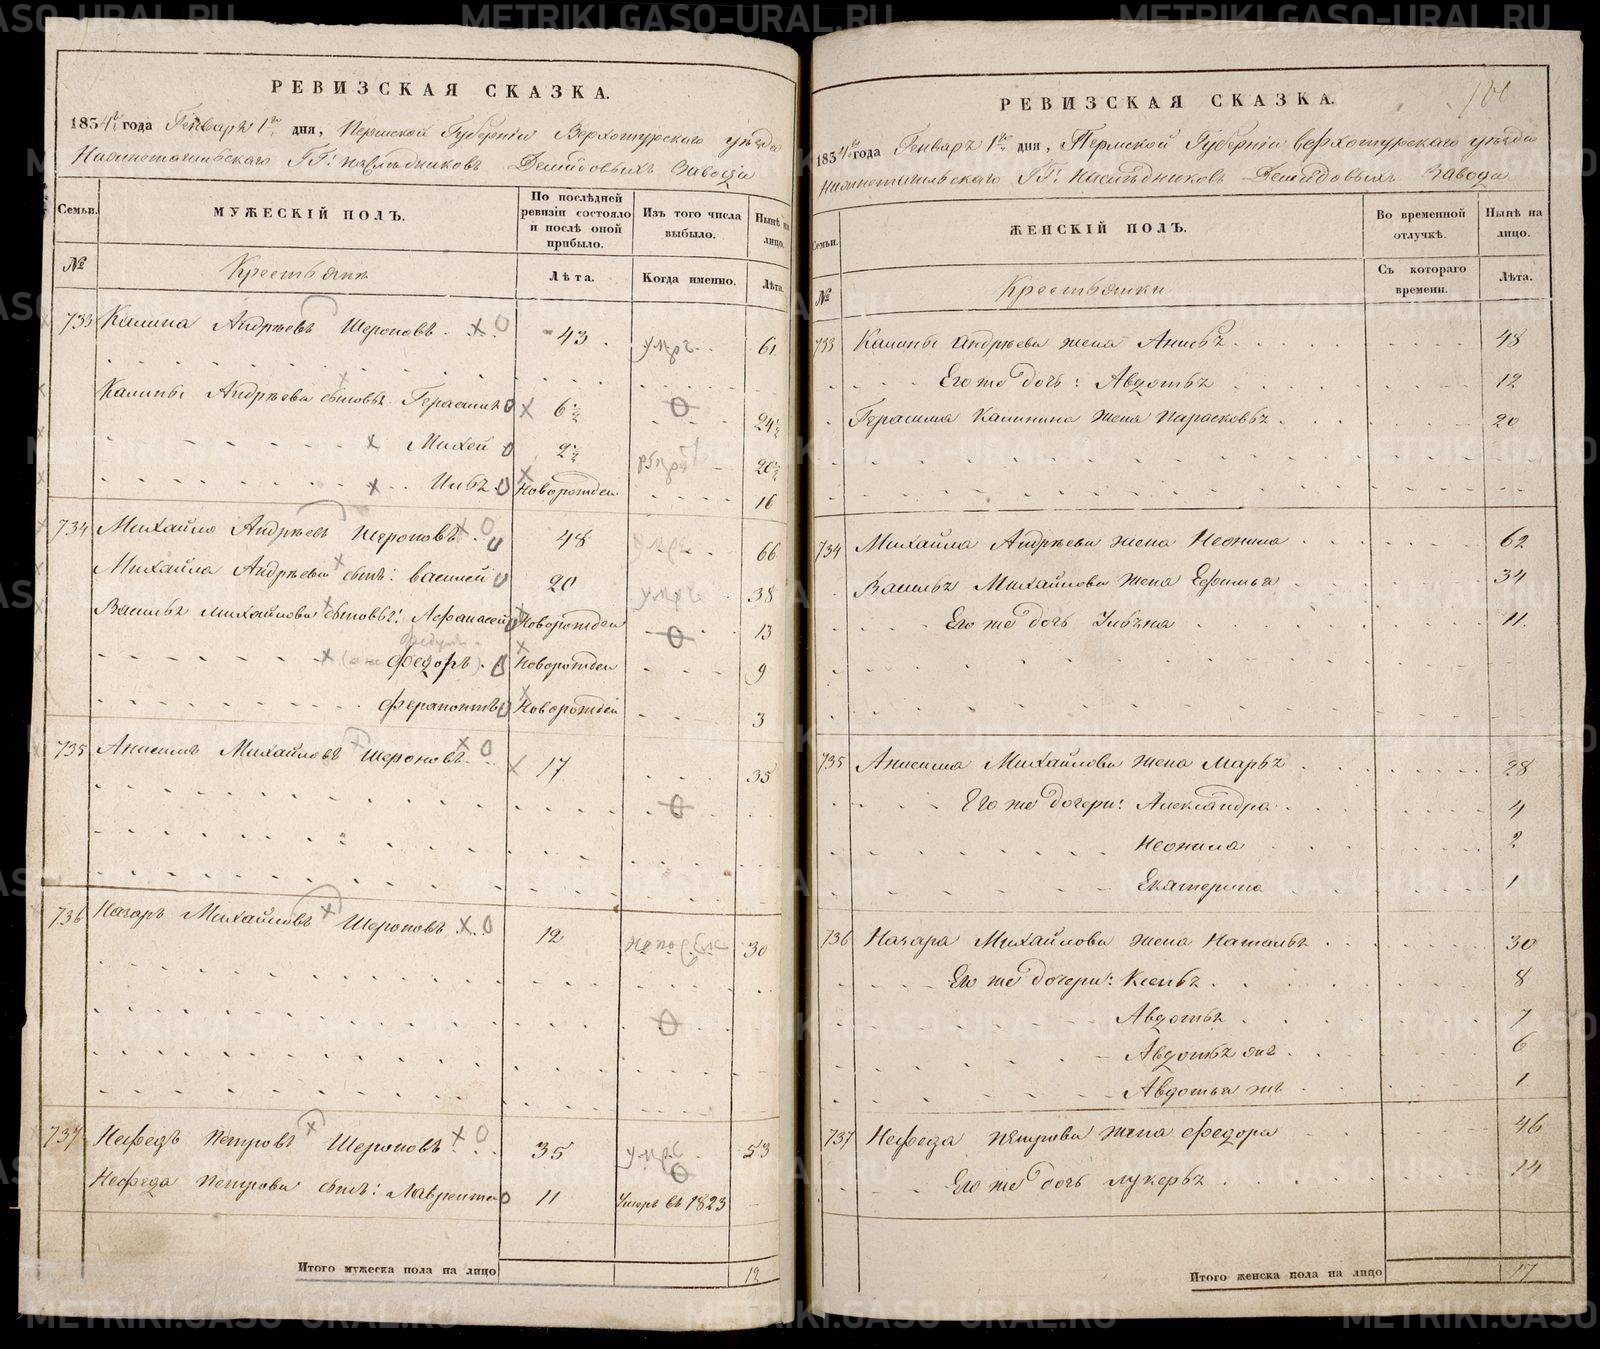 РЕВИЗСКАЯ СКАЗКА.
1834го года Генваря 1го дня, Пермской Губерніи Верхотурскаго уѣзда
Нижнетагильскаго ГГ: наслѣдниковъ Демидовыхъ Завода
Семьи.
МУЖЕСКІЙ ПОЛЪ.
По послѣдней ревизіи состояло и послѣ оной прибыло.
Изъ того числа выбыло.
Нынѣ на лицо.
№
Крестьяне
Лѣта.
Когда именно.
Лѣта.
733 Калина Андрѣевъ Шероновъ. 43 умръ 61
Калины Андрѣева сыновья Герасимъ 6½ 24½
Михей 2½ 20½
Новорожден 16
734 Михайло Андрѣевъ Шероновъ 48 66
Михайла Андрѣева сынъ: Василей 20 умръ 38
Василья Михайлова сыновья: Афанасей Новорожден 13
Федоръ Новорожден 9
Ферапонтъ Новорожден 3
735 Анисимъ Михайловъ Шероновъ 17 35
736 Назаръ Михайловъ Шероновъ 12 30
737 Нефедъ Петровъ Шероновъ 35 умръ 53
Нефеда Петрова сынъ: Лаврентей 11 Умеръ въ 1823
Итого мужеска пола на лицо 12
РЕВИЗСКАЯ СКАЗКА.
1834го года Генваря 1го дня, Пермской Губерніи Верхотурскаго уѣзда
Нижнетагильскаго ГГ: Наслѣдниковъ Демидовыхъ Завода
Семьи.
ЖЕНСКІЙ ПОЛЪ.
Во временной отлучкѣ.
Нынѣ на лицо.
№
Крестьянки
Съ котораго времени.
Лѣта.
733 Калины Андрѣева жена Анисья 48
Его же дочь: Авдотья 12
Герасима Калинина жена Парасковья 20
734 Михайла Андрѣева жена Неонила 62
Василья Михайлова жена Ефимья 34
Его же дочь Ульяна 11
735 Анисима Михайлова жена Марья 28
Его же дочери: Александра 4
Неонила 2
Екатерина 1
736 Назара Михайлова жена Наталья 30
Его же дочери: Ксенья 8
Авдотья 7
Авдотья 6
Авдотья 1
737 Нефеда Петрова жена Федора 46
Его же дочь Лукерья 14
Итого женска пола на лицо 17
METRIKI.GASO-URAL.RU